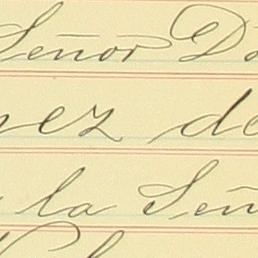 Señor D
nez de
la Señ